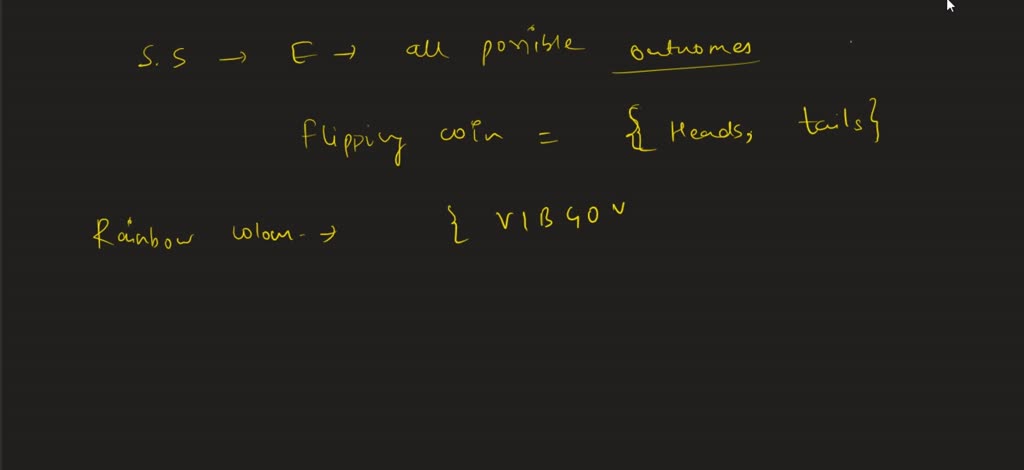 S.S → E → all possible outcomes
flipping coin = { Heads, tails}
Rainbow colour → { VIBGOV